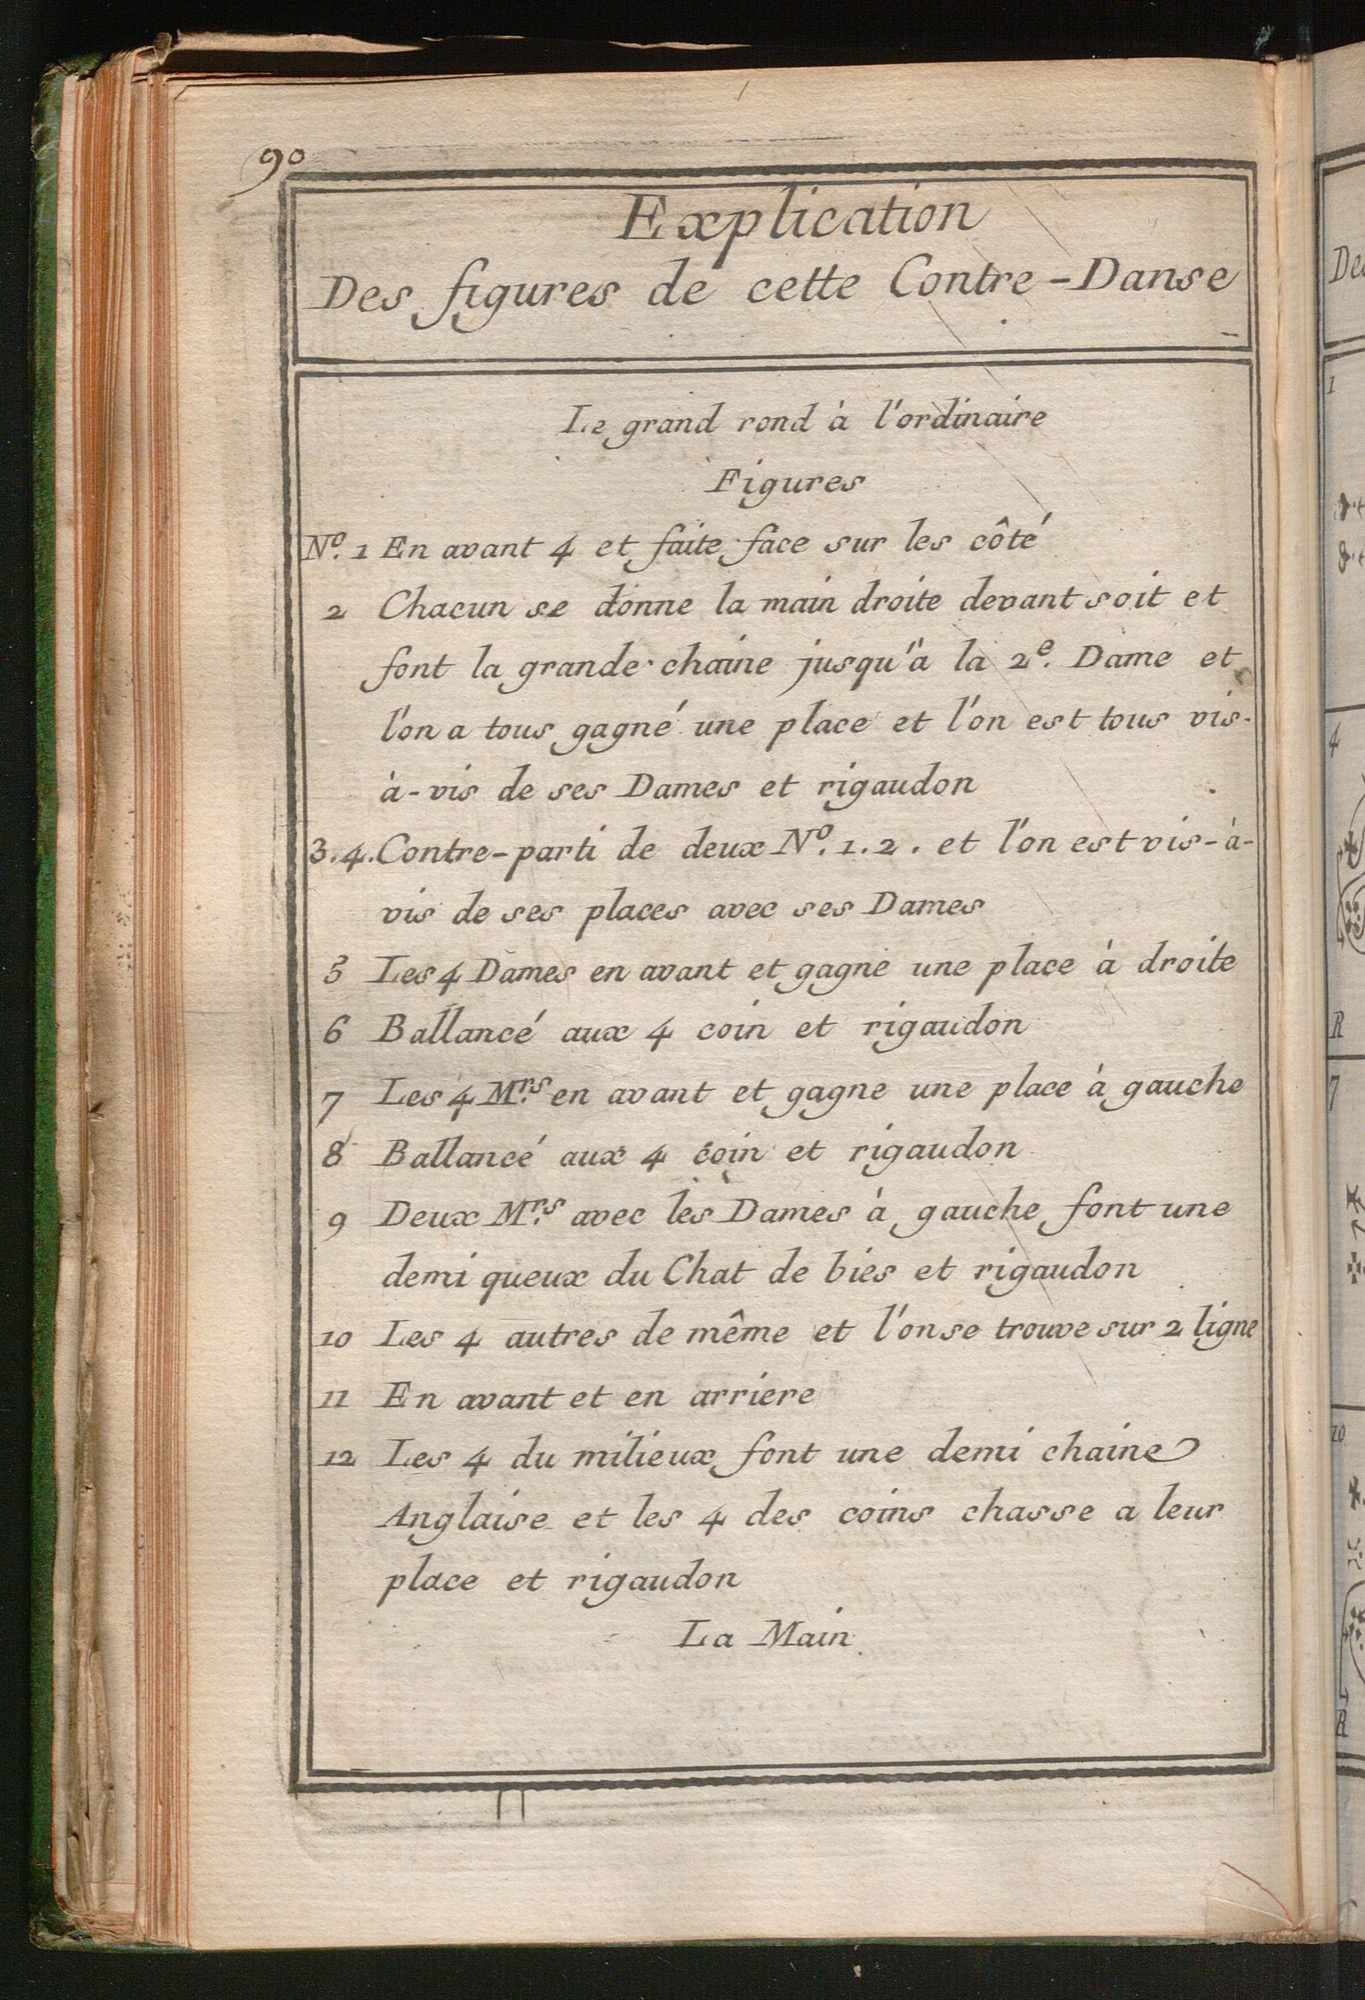 90
Explication
Des figures de cette Contre-Danse
Le grand rond à l'ordinaire
Figures
Nº. 1 En avant 4 et faite face sur les côté
2 Chacun se donne la main droite devant soit et
font la grande chaine jusqu'à la 2e. Dame et
l'on a tous gagné une place et l'on est tous vis-
à-vis de ses Dames et rigaudon
3.4. Contre-parti de deux Nº. 1.2. et l'on est vis-à-
vis de ses places avec ses Dames
5 Les 4 Dames en avant et gagne une place à droite
6 Ballancé aux 4 coin et rigaudon
7 Les 4 Mrs. en avant et gagne une place à gauche
8 Ballancé aux 4 coin et rigaudon
9 Deux Mrs. avec les Dames à gauche font une
demi queux du Chat de bies et rigaudon
10 Les 4 autres de même et l'on se trouve sur 2 ligne
11 En avant et en arriere
12 Les 4 du milieux font une demi chaine
Anglaise et les 4 des coins chasse a leur
place et rigaudon
La Main
1
4
R
7
10
R